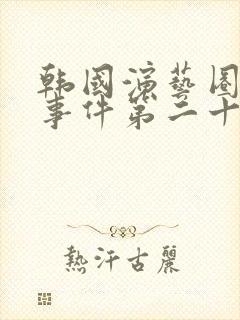 韩國演藝圈
事件第二十
熱汗古麗